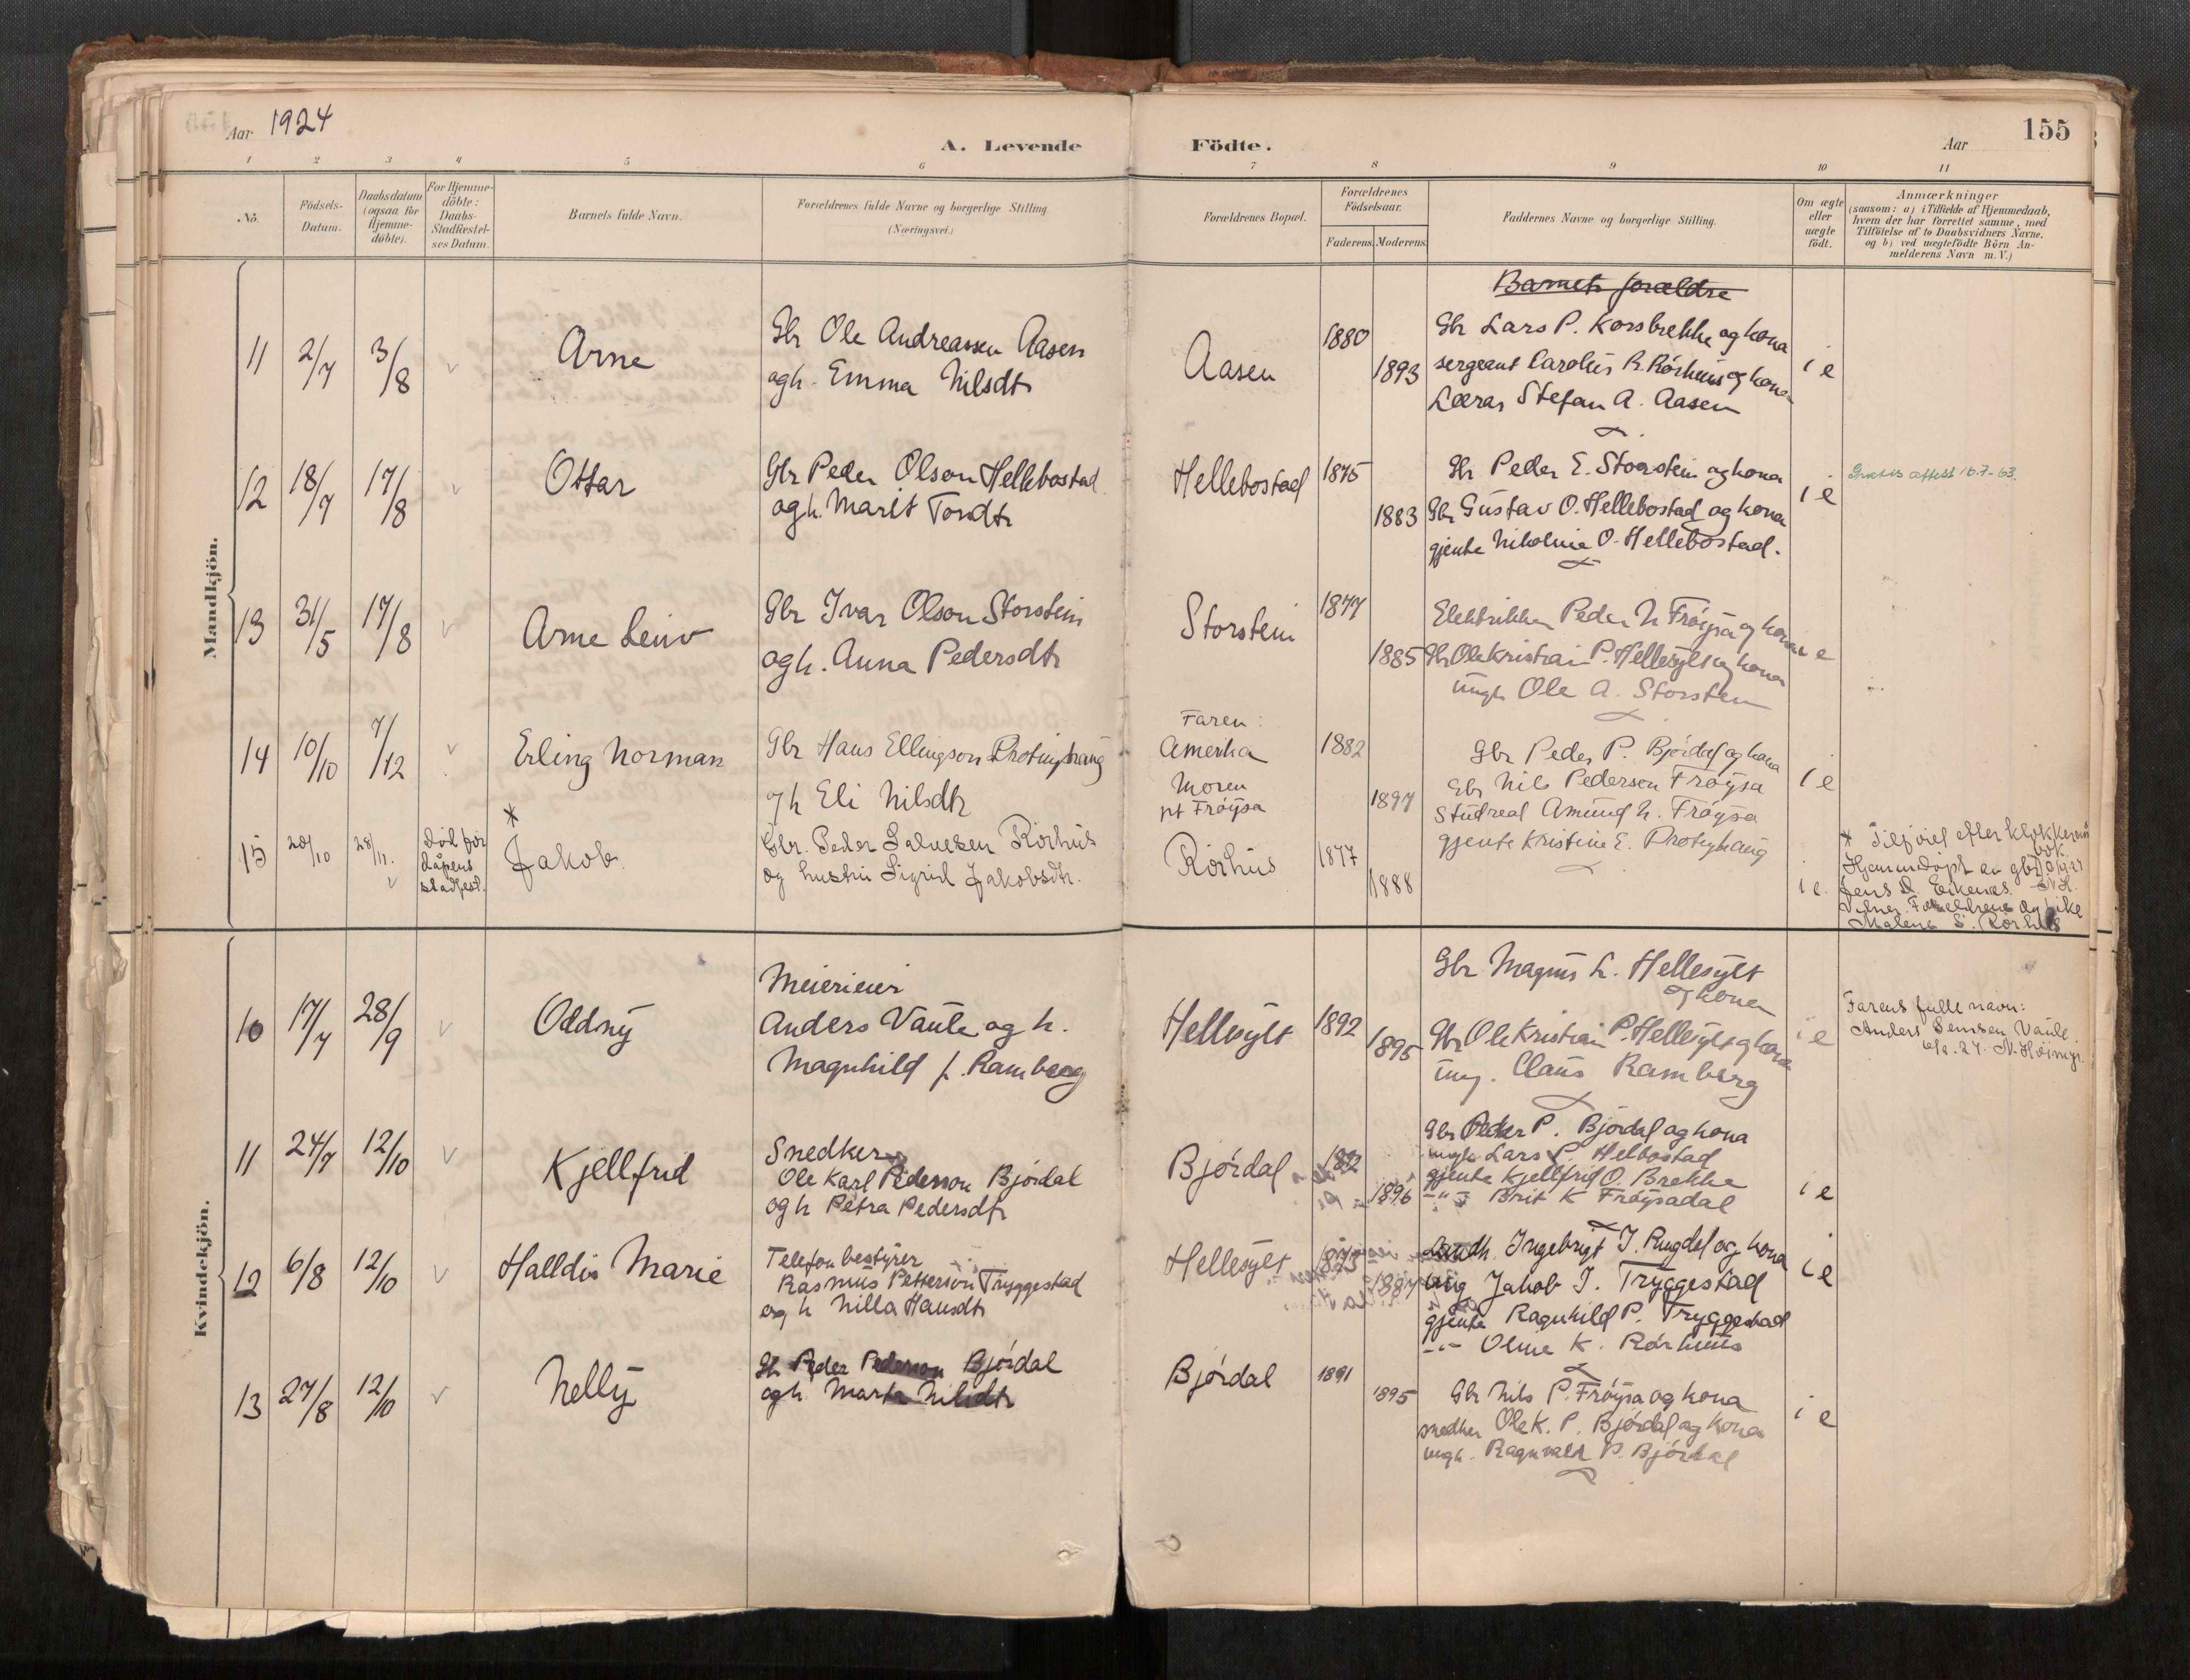 Aar 1924
A. Levende Födte.
Aar 155
1 2 3 4 5 6 7 8 9 10 11
No.
Födsels-Datum.
Daabsdatum (ogsaa for Hjemme-döbte).
For Hjemme-döbte: Daabs-Stadfæstel-ses Datum.
Barnets fulde Navn.
Forældrenes fulde Navne og borgerlige Stilling (Næringsvei.)
Forældrenes Bopæl.
Forældrenes Födselsaar.
Faderens. Moderens.
Faddernes Navne og borgerlige Stilling.
Om ægte eller uægte født.
Anmærkninger
(saasom: a) i Tilfælde af Hjemmedaab,
hvem der har forrettet samme, med
Tilföielse af to Daabsvidners Navne.
og b) ved uægtefödte Börn An-
melderens Navn m. V.)
Mandkjön.
Barnets forældre
11 2/7 3/8 v Arne
Gbr Ole Andreassen Aasen
og h. Emma Nilsdtr
Aasen 1880 1893
Gbr Lars P. Korsbrekke og kona
sergeant Carolus R. Rörhuus og kona
Lærar Stefan A. Aasen
i e
12 18/7 17/8 v Ottar
Gbr Peder Olson Hellebostad
og h. Marit Tordtr
Hellebostad 1875 1883
Gbr Peder E. Storstein og kona
Gbr Gustav O. Hellebostad og kona
gjente Nikoline O. Hellebostad.
i e
Gratis attest 16.7-63.
13 31/5 17/8 v Arne Leiv
Gbr Ivar Olson Storstein
og h. Anna Pedersdtr
Storstein 1877 1885
Elektrikker Peder N Fröysa og kona
Gbr Ole Kristian P. Hellesylt og kona
ungk Ole A. Storstein
i e
14 10/10 7/12 v Erling Norman
Gbr Hans Ellingson
og h Eli Nilsdtr
Faren:
Amerika
Moren
pt Fröysa
1882 1897
Gbr Peder P. Björdal og kona
Gbr Nils Pederson Fröysa
Studreal Amund N. Fröysa
gjente Kristine E.
i e
15 20/10 28/11. v
Död för
dåpens
stadfest.
*
Jakob.
Gbr. Peder Salvesen Rörhus
og hustru Sigrid Jakobsdtr.
Rörhus 1877 1888
i e.
* Tilföiet efter klokkerens
bok.
Hjemmedöpt av gbr
Jens D. Eikenes. N.H.
Vidner: Foreldrene og pike
Malene S. Rörhus
Kvindekjön.
10 17/7 28/9 v Oddny
Meierieier
Anders Vaule og h.
Magnhild f. Ramberg
Hellesylt 1892 1895
Gbr Magnus L. Hellesylt
og kona
Gbr Ole Kristian P. Hellesylt og kona
ung. Claus Ramberg
i e
Farens fulle navn:
Anders Vaule
11 24/7 12/10 v Kjellfrid
Snedker
Ole Karl Pederson Björdal
og h Petra Pedersdtr
Björdal 1892 1896
Gbr Peder P. Björdal og kona
ungk Lars P. Helbostad
gjente Kjellfrid O. Brekke
-"- Brit K Fröysadal
i e
12 6/8 12/10 v Halldis Marie
Telefonbestyrer
Rasmus Petterson Tryggestad
og h Nilla Hansdtr
Hellesylt 1887
Landh. Ingebrigt J. Ringdal og kona
ung Jakob J. Tryggestad
gjente Ragnhild P. Tryggestad
-"- Oline K. Rörhuus
i e
13 27/8 12/10 v Nelly
Gbr Peder Pederson Björdal
og h. Marta Nilsdtr
Björdal 1891 1895
Gbr Nils P. Fröysa og kona
snedker Ole K. P. Björdal og kona
ungk. Ragnvald P. Björdal
i e